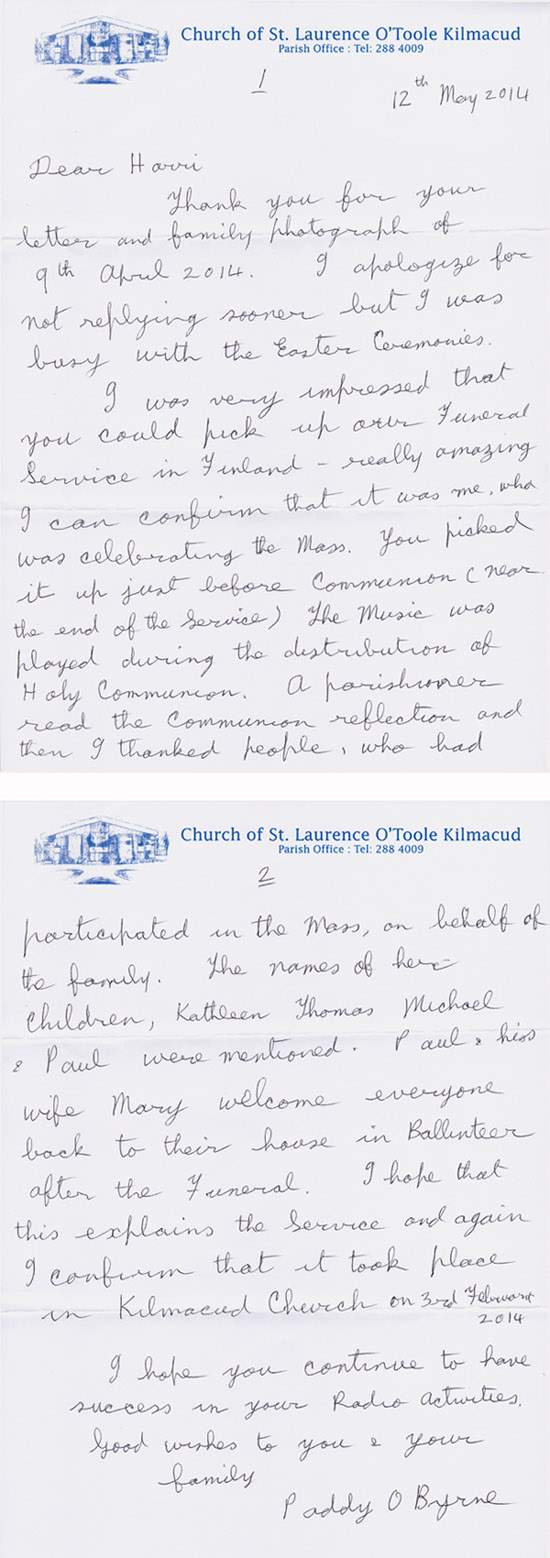 Church of St. Laurence O'Toole Kilmacud
Parish Office : Tel: 288 4009
1
12th May 2014
Dear Harri
Thank you for your
letter and family photograph of
9th April 2014. I apologize for
not replying sooner but I was
busy with the Easter Ceremonies.
I was very impressed that
you could pick up our Funeral
Service in Finland - really amazing
I can confirm that it was me, who
was celebrating the Mass. You picked
it up just before Communion (near
the end of the Service) The Music was
played during the distribution of
Holy Communion. A parishioner
read the Communion reflection and
then I thanked people, who had
Church of St. Laurence O'Toole Kilmacud
Parish Office : Tel: 288 4009
2
participated in the Mass, on behalf of
the family. The names of her
Children, Kathleen Thomas Michael
& Paul were mentioned. Paul & his
wife Mary welcome everyone
back to their house in Ballinteer
after the Funeral. I hope that
this explains the Service and again
I confirm that it took place
in Kilmacud Church on 3rd February
2014
I hope you continue to have
success in your Radio Activities.
Good wishes to you & your
family
Paddy O Byrne